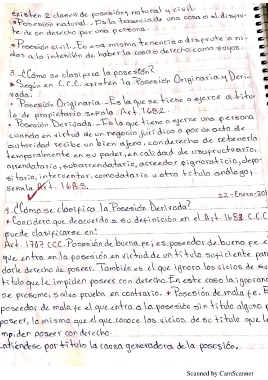 existen 2 clases de posesión, natural y civil.
• Posesión natural.- Es la tenencia de una cosa o el disfru-
te de un derecho por una persona.
• Posesión civil.- Es esa misma tenencia o disfrute u ni-
dos a la intención de haber la cosa o derecho como suyos.
8.- ¿Cómo se clasifica la posesión?
• Según en C.C.C. existen la Posesión Originaria y Deri-
vada.
• Posesión Originaria.- Es la que se tiene o ejerce a títu-
lo de propietario señala Art. 1682.
• Posesión Derivada.- Es la que tiene o ejerce una persona
cuando en virtud de un negocio jurídico o por un acto de
autoridad recibe un bien ajeno, con derecho de retenerlo
temporalmente en su poder, en calidad de usufructuario,
arrendatario, subarrendatario, acreedor pignoraticio, depo-
sitario, interventor, comodatario u otro título análogo,
señala Art. 1683.
22-Enero-20
9. ¿Cómo se clasifica la Posesión Derivada?
• Considero que de acuerdo a su definición en el Art. 1683 C.C.C
puede clasificarse en:
Art. 1707 CCC. Posesión de buena fe; es poseedor de buena fe e
que entra en la posesión en virtud de un título suficiente par
darle derecho de poseer. También es el que ignora los vicios de su
título que le impiden poseer con derecho. En este caso la ignoranc
se presume, salvo prueba en contrario. • Posesión de mala fe. E
poseedor de mala fe el que entra a la posesión sin título alguno p
poseer, lo mismo que el que conoce los vicios de su título que l
impiden poseer con derecho.
entiéndese por título la causa generadora de la posesión.
Scanned by CamScanner